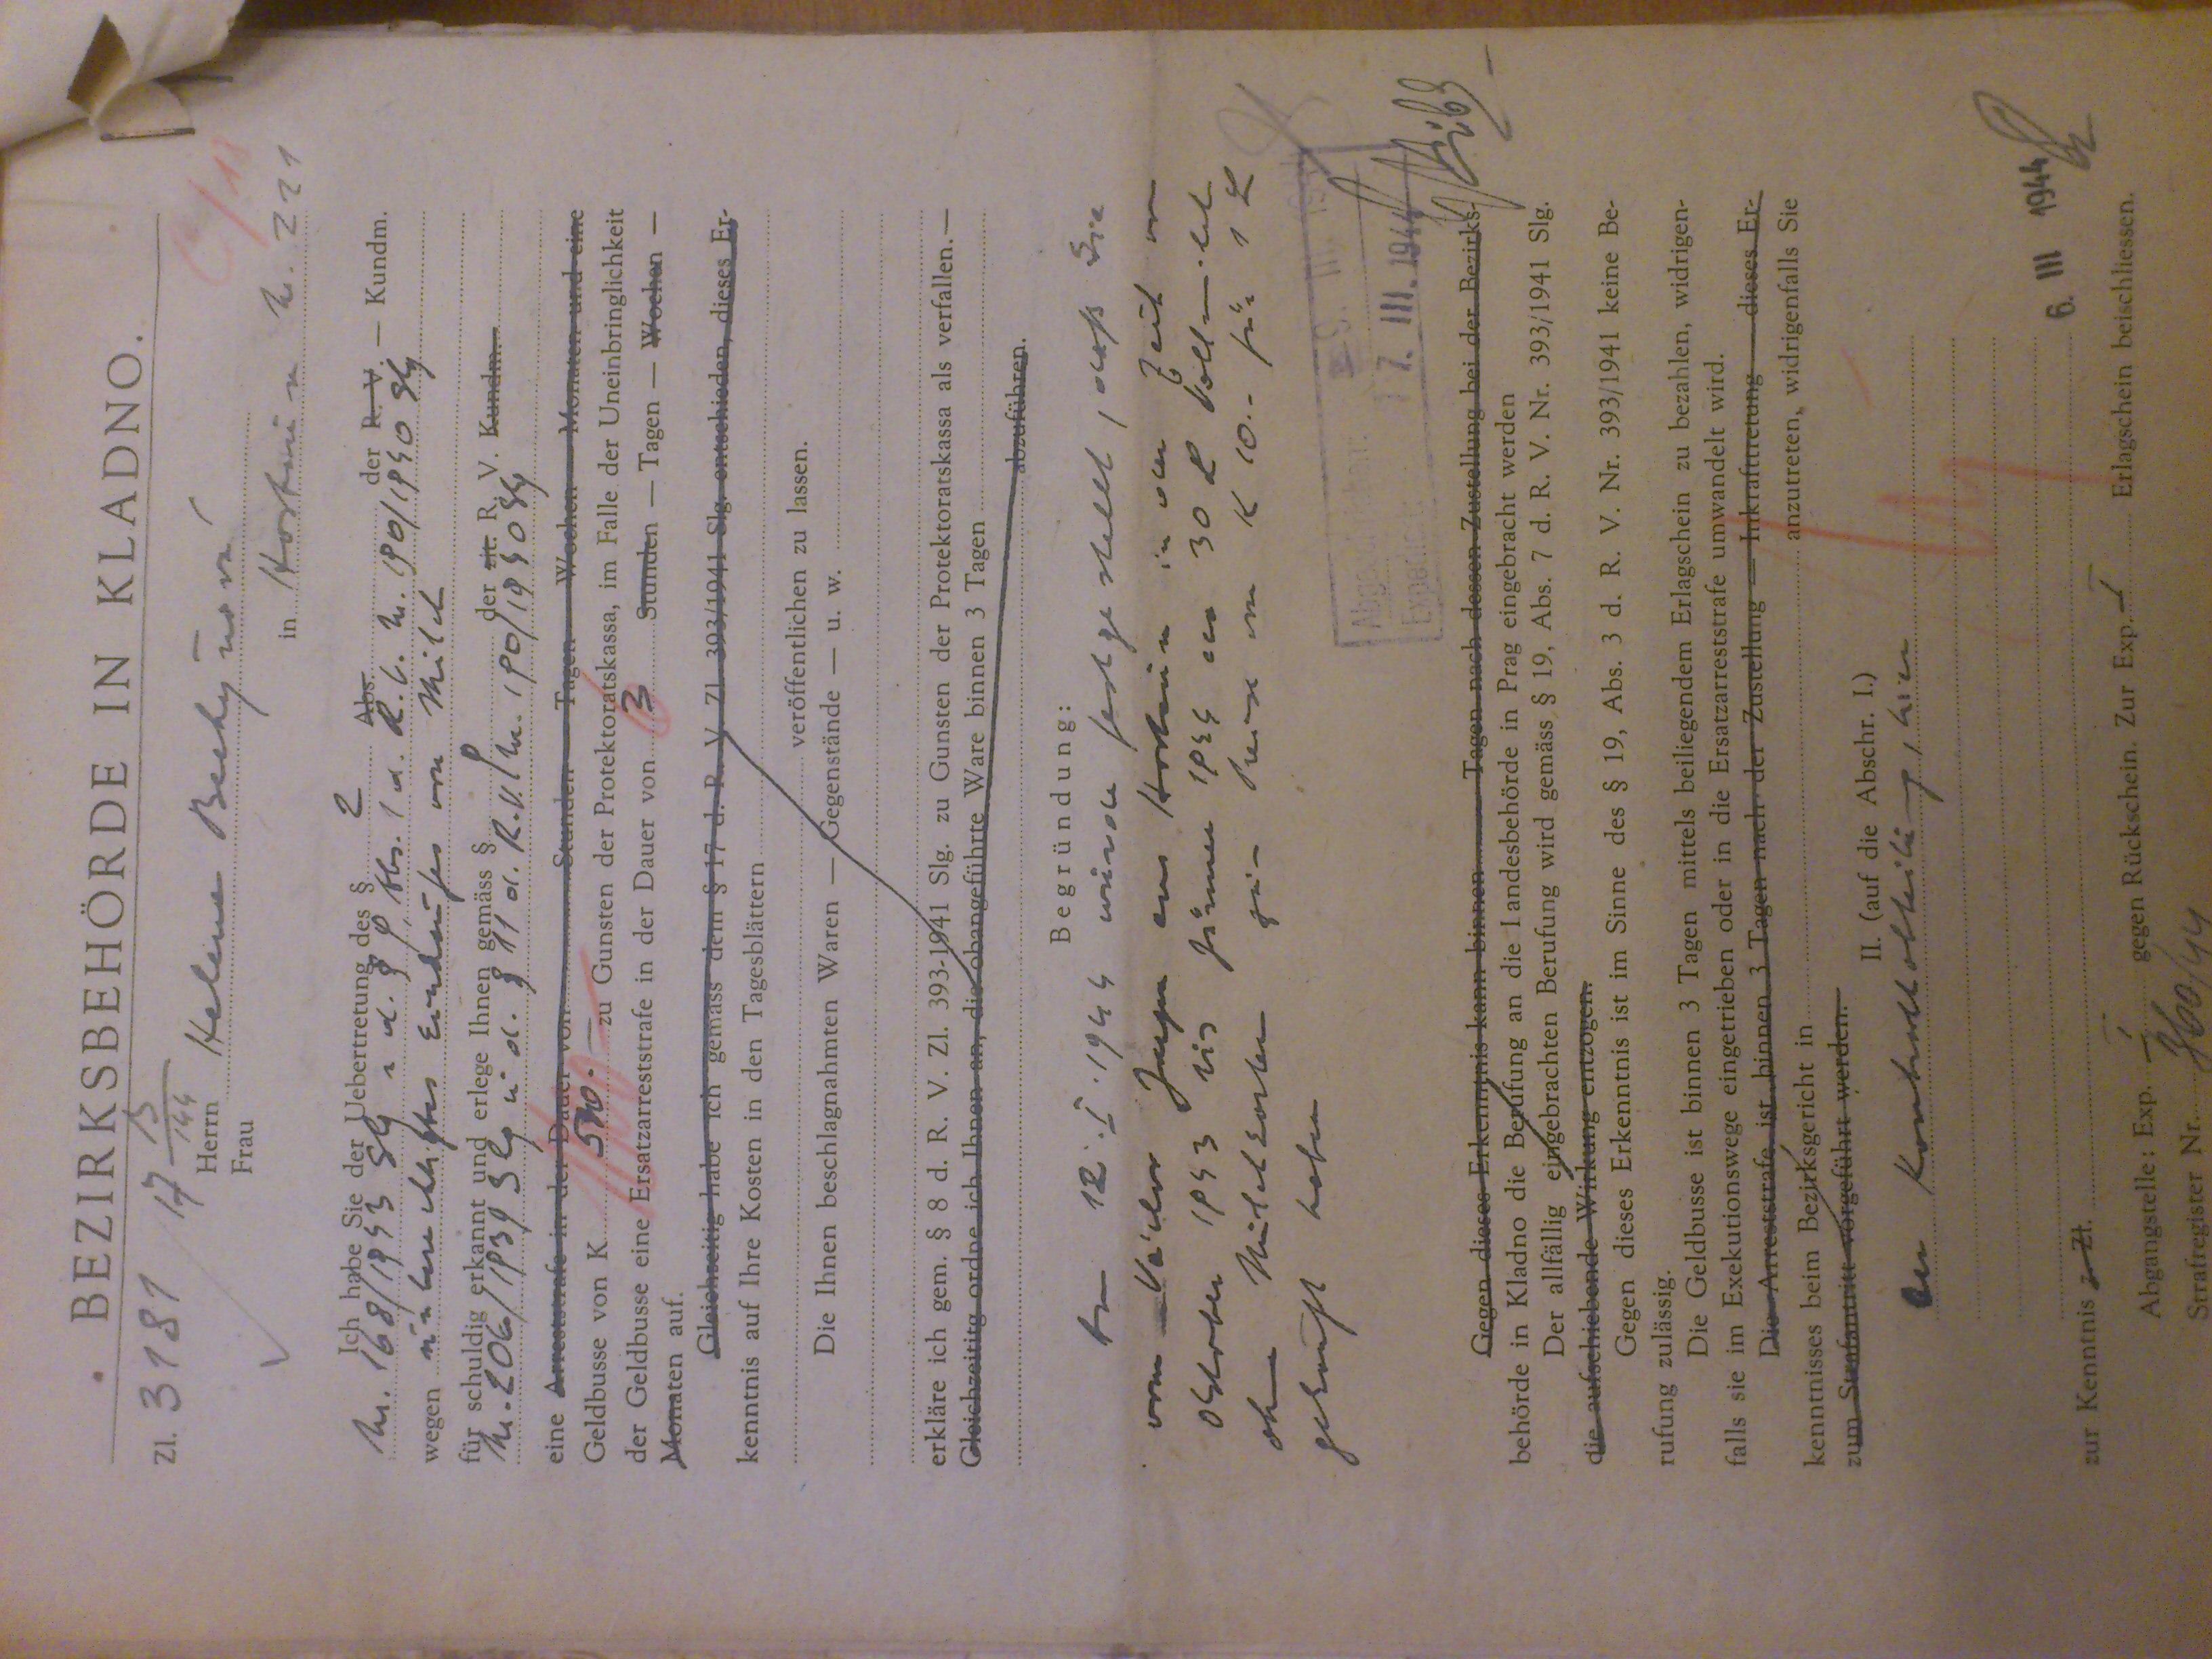 BEZIRKSBEHÖRDE IN KLADNO.
Zl. 3181 17 13/144
Herrn Helene Bechýnová
Frau
in Hostouň Nr. 221
Ich habe Sie der Uebertretung des § 2 Abs. der R. V. — Kundm.
Nr. 168/1943 Slg u d. § 9, Abs. 1 d. R. V. Nr. 190/1940 Slg
wegen unberechtigtes Einkaufes von Milch
für schuldig erkannt und erlege Ihnen gemäss § 9 der zit. R. V. Kundm.
Nr. 206/1939 Slg u d. § 11 d. R. V. Nr. 190/1940 Slg
eine Arreststrafe in der Dauer von Stunden Tagen Wochen Monaten und eine
Geldbusse von K 500.— zu Gunsten der Protektoratskassa, im Falle der Uneinbringlichkeit
der Geldbusse eine Ersatzarreststrafe in der Dauer von 3 Stunden — Tagen — Wochen —
Monaten auf.
Gleichzeitig habe ich gemäss dem § 17 d. R. V. Zl. 393/1941 Slg. entschieden, dieses Er-
kenntnis auf Ihre Kosten in den Tagesblättern
veröffentlichen zu lassen.
Die Ihnen beschlagnahmten Waren — Gegenstände — u. w.
erkläre ich gem. § 8 d. R. V. Zl. 393-1941 Slg. zu Gunsten der Protektoratskassa als verfallen.—
Gleichzeititg ordne ich Ihnen an, die obangeführte Ware binnen 3 Tagen
abzuführen.
Begründung:
Am 12.I.1944 wurde festgestellt, daß Sie
vom Václav aus Hostouň in der Zeit von
Oktober 1943 bis Jänner 1944 ca 30 L Vollmilch
ohne Milchkarten zum Preise von K 10.- für 1 L
gekauft haben
Abgeschrieben: 9. III. 1944
Exped 7. III. 1944
Gegen dieses Erkenntnis kann binnen Tagen nach dessen Zustellung bei der Bezirks-
behörde in Kladno die Berufung an die Landesbehörde in Prag eingebracht werden
Der allfällig eingebrachten Berufung wird gemäss § 19, Abs. 7 d. R. V. Nr. 393/1941 Slg.
die aufschiebende Wirkung entzogen.
Gegen dieses Erkenntnis ist im Sinne des § 19, Abs. 3 d. R. V. Nr. 393/1941 keine Be-
rufung zulässig.
Die Geldbusse ist binnen 3 Tagen mittels beiliegendem Erlagschein zu bezahlen, widrigen-
falls sie im Exekutionswege eingetrieben oder in die Ersatzarreststrafe umwandelt wird.
Die Arreststrafe ist binnen 3 Tagen nach der Zustellung — Inkrafttretung dieses Er-
kenntnisses beim Bezirksgericht in anzutreten, widrigenfalls Sie
zum Strafantritt vorgeführt werden.
II. (auf die Abschr. I.)
der Kontrollabteilung, hier
6. III 1944
zur Kenntnis z. Zl.
Abgangstelle: Exp. I gegen Rückschein. Zur Exp. I Erlagschein beischliessen.
Strafregister Nr. 360/44